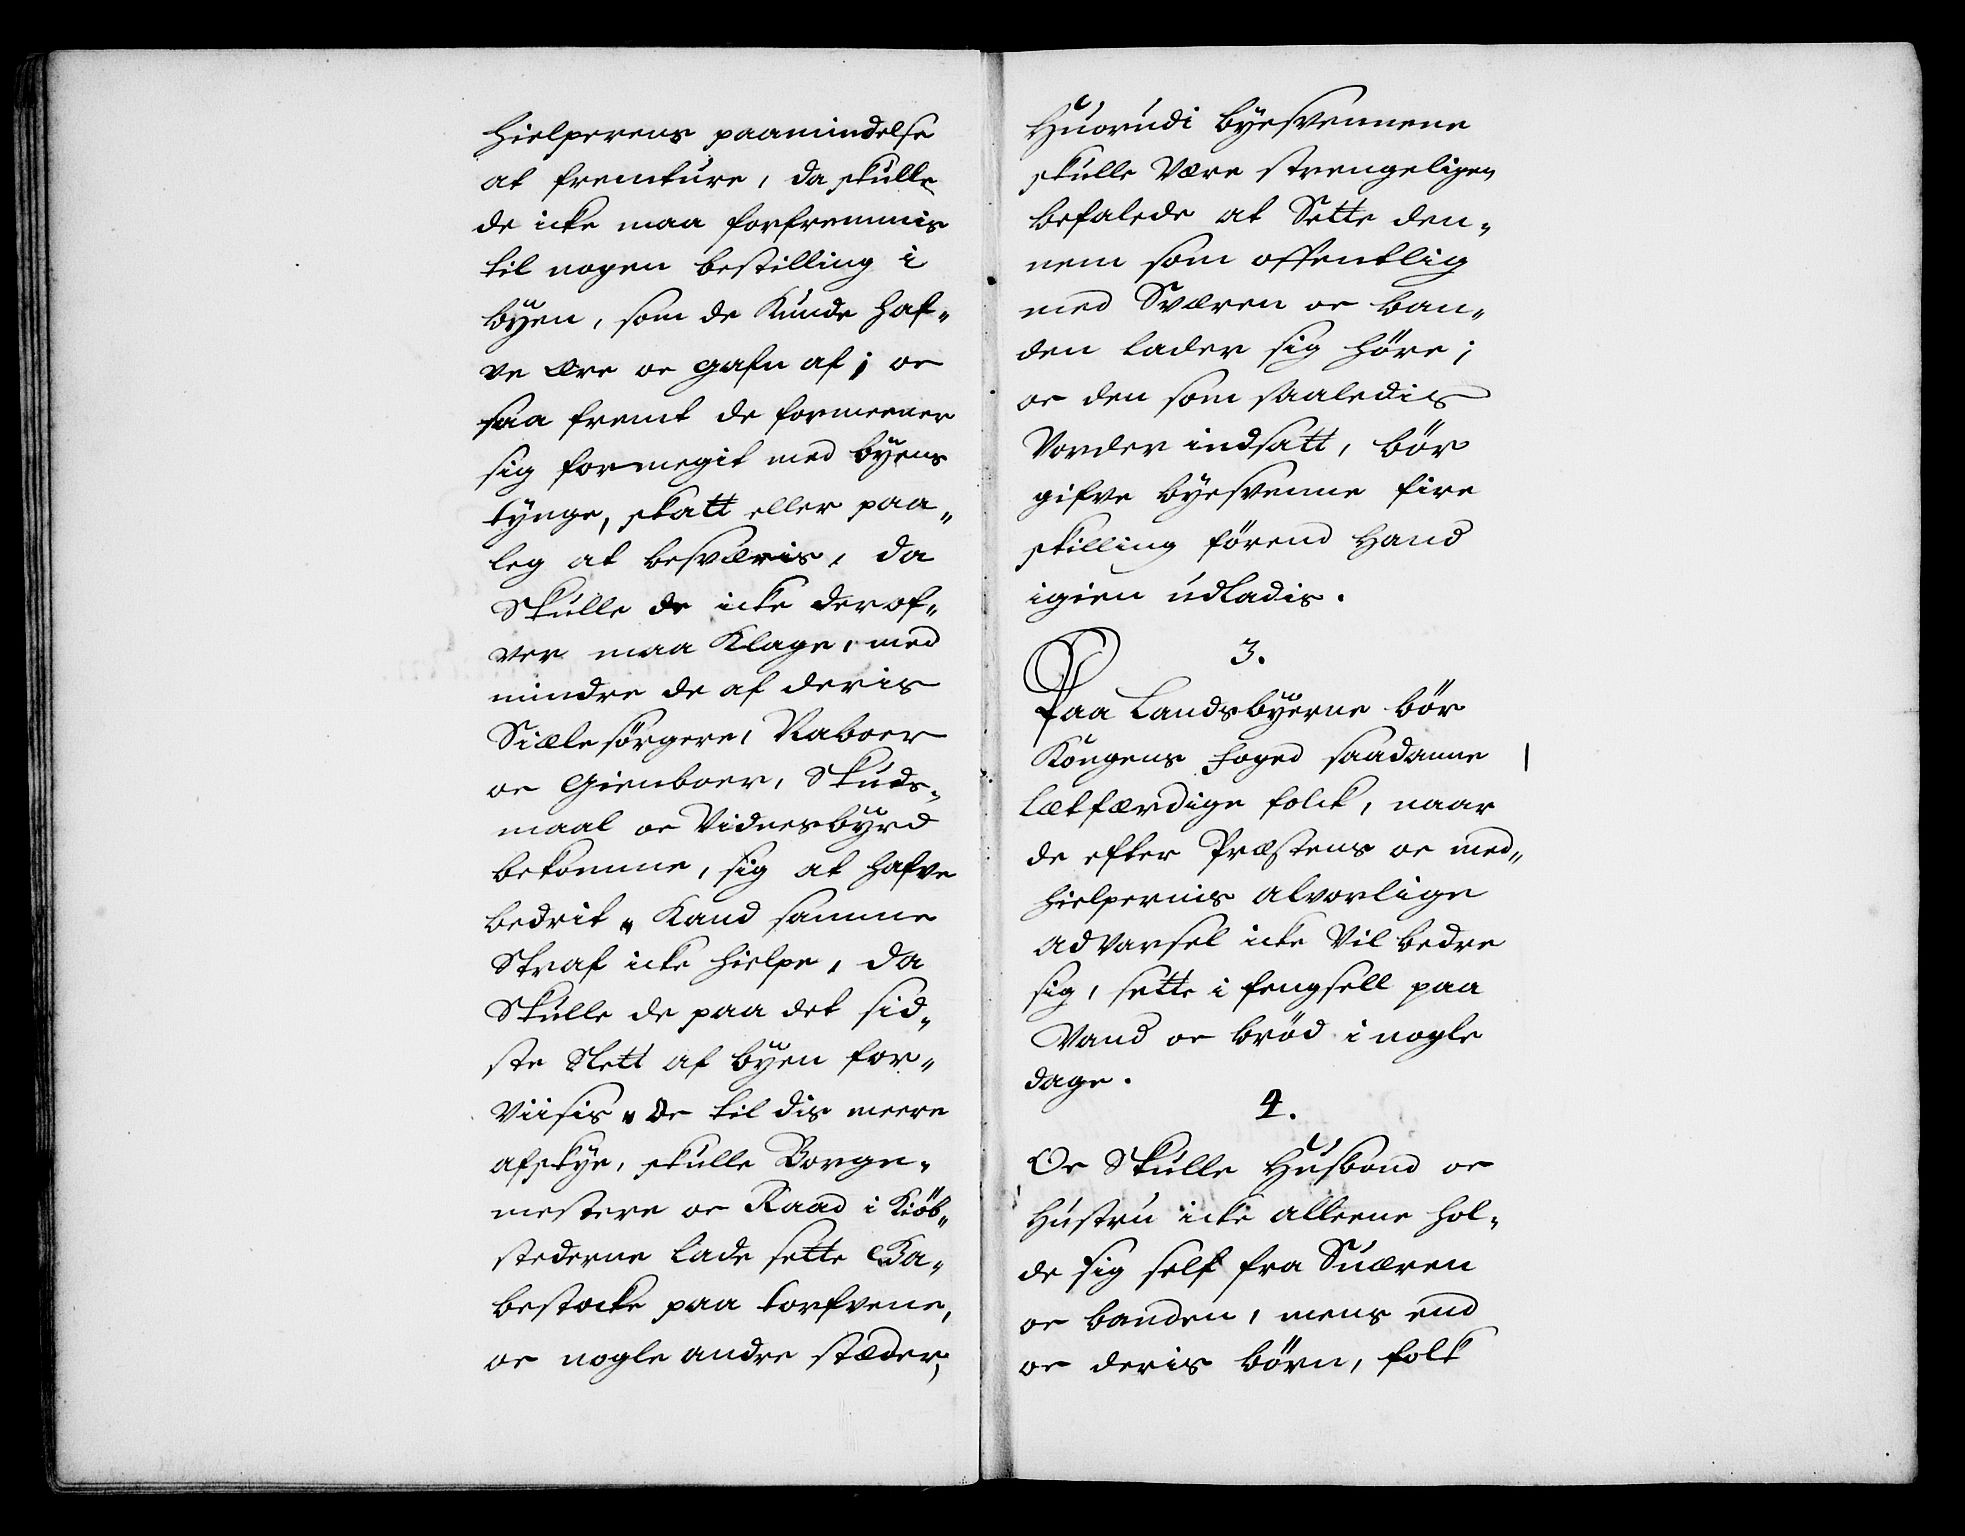 hielperens paamindelse
at fremture, da skulle
de icke maa forfremmis
til nogen bestilling i
byen, som de Kunde haf„
ve ære oc gafn af; oc
saa fremt de formeener
sig formegit med byens
tynge, skatt eller paa„
leg at besværis, da
Skulle de icke derof„
ver maa Klage, med
mindre de af deris
Siælesörgere, Naboer
oc Gienboer, Skuds„
maal oc Vidnesbyrd
bekomme, sig at hafve
bedrit. Kand samme
Straf icke hielpe, da
Skulle de paa det sid„
ste Slett af byen for„
Viisis. Oc til dis meere
afskye, skulle Borge„
mestere oc Raad i Kiöb„
stederne lade sette Ga„
bestocke paa torfvene,
oc nogle andre stæder,
Huorudi byesvennene
skulle Være strengeligen
befalede at Sette den„
nem som offentlig
med Sværen oc ban„
den lader sig höre;
oc den som saaledis
Vorder indsatt, bör
gifve byesvenne fire
skilling förend Hand
igien udladis.
3.
Paa Landsbyerne bör
Kongens Foged saadanne
letfærdige folck, naar
de efter Præstens oc med„
hielpernis alvorlige
advarsel icke Vil bedre
sig, sette i fengsell paa
Vand oc bröd i nogle
dage.
4.
Oc Skulle Husbond oc
Hustru icke alleene hol„
de sig self fra Suæren
oc banden, mens end
oc deris börn, folk